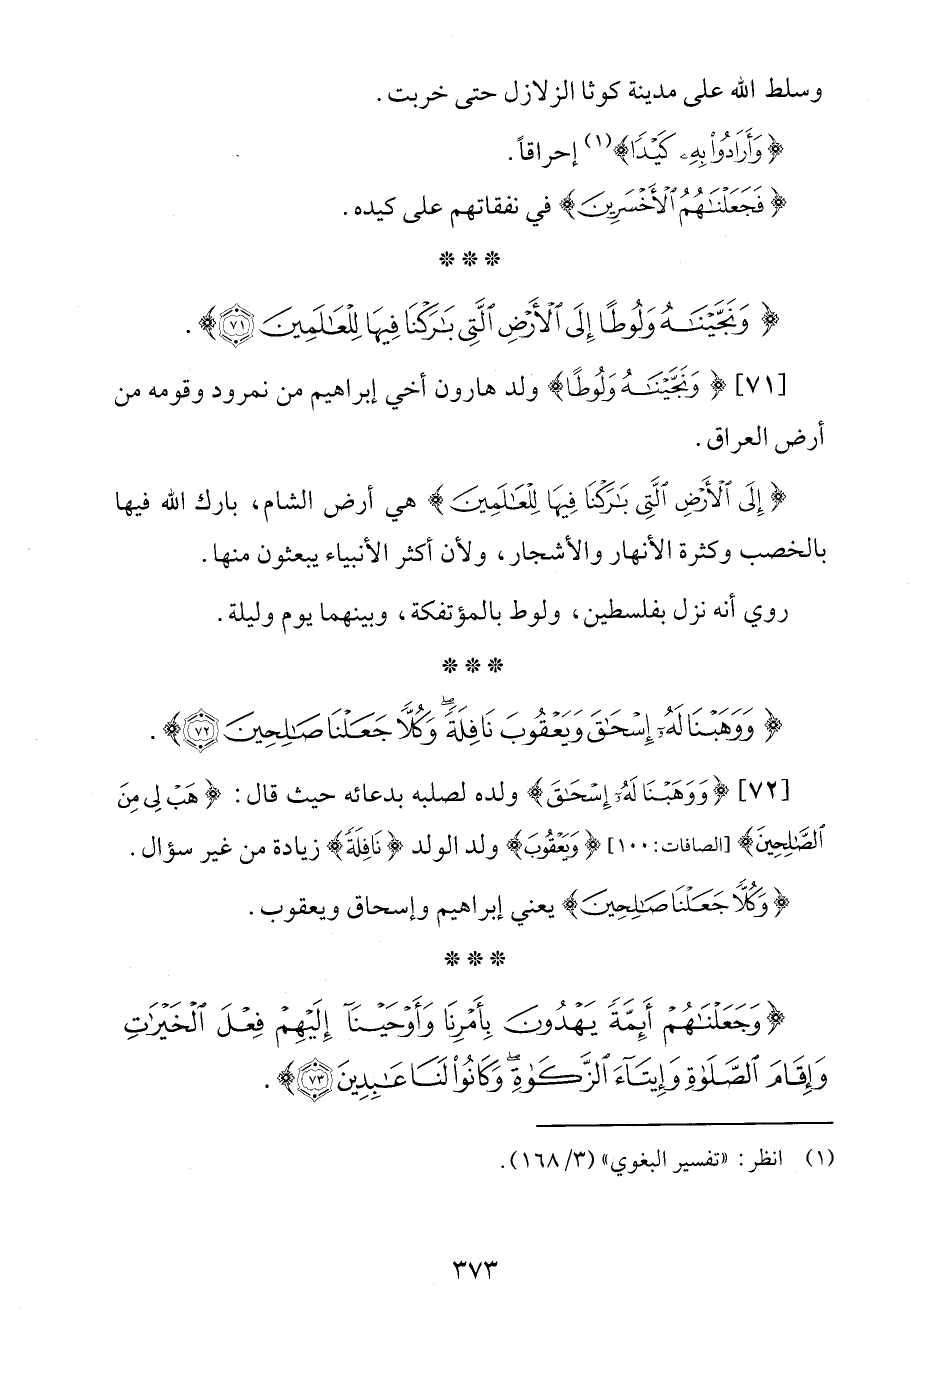 وسلط الله على مدينة كوثا الزلازل حتى خربت.
﴿وَأَرَادُواْ بِهِۦ كَيۡدٗا﴾(١) إحراقاً.
﴿فَجَعَلۡنَٰهُمُ ٱلۡأَخۡسَرِينَ﴾ في نفقاتهم على كيده.
* * *
﴿وَنَجَّيۡنَٰهُ وَلُوطًا إِلَى ٱلۡأَرۡضِ ٱلَّتِي بَٰرَكۡنَا فِيهَا لِلۡعَٰلَمِينَ ٧١﴾.
[٧١] ﴿وَنَجَّيۡنَٰهُ وَلُوطًا﴾ ولد هارون أخي إبراهيم من نمرود وقومه من
أرض العراق.
﴿إِلَى ٱلۡأَرۡضِ ٱلَّتِي بَٰرَكۡنَا فِيهَا لِلۡعَٰلَمِينَ﴾ هي أرض الشام، بارك الله فيها
بالخصب وكثرة الأنهار والأشجار، ولأن أكثر الأنبياء يبعثون منها.
روي أنه نزل بفلسطين، ولوط بالمؤتفكة، وبينهما يوم وليلة.
* * *
﴿وَوَهَبۡنَا لَهُۥٓ إِسۡحَٰقَ وَيَعۡقُوبَ نَافِلَةٗۖ وَكُلّٗا جَعَلۡنَا صَٰلِحِينَ ٧٢﴾.
[٧٢] ﴿وَوَهَبۡنَا لَهُۥٓ إِسۡحَٰقَ﴾ ولده لصلبه بدعائه حيث قال: ﴿هَبۡ لِي مِنَ
ٱلصَّٰلِحِينَ﴾ [الصافات: ١٠٠] ﴿وَيَعۡقُوبَ﴾ ولد الولد ﴿نَافِلَةٗ﴾ زيادة من غير سؤال.
﴿وَكُلّٗا جَعَلۡنَا صَٰلِحِينَ﴾ يعني إبراهيم وإسحاق ويعقوب.
* * *
﴿وَجَعَلۡنَٰهُمۡ أَئِمَّةٗ يَهۡدُونَ بِأَمۡرِنَا وَأَوۡحَيۡنَآ إِلَيۡهِمۡ فِعۡلَ ٱلۡخَيۡرَٰتِ
وَإِقَامَ ٱلصَّلَوٰةِ وَإِيتَآءَ ٱلزَّكَوٰةِۖ وَكَانُواْ لَنَا عَٰبِدِينَ ٧٣﴾.
(١) انظر: «تفسير البغوي» (٣/ ١٦٨).
٣٧٣